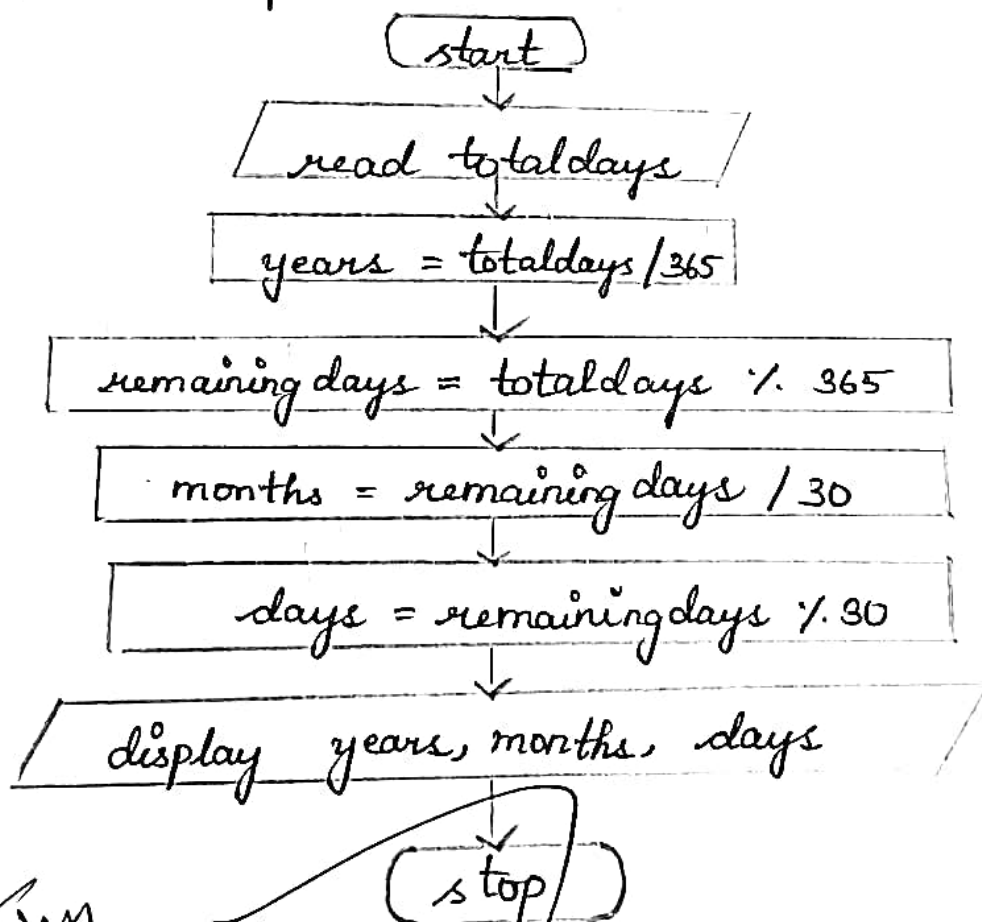 start
read totaldays
years = totaldays / 365
remaining days = totaldays % 365
months = remaining days / 30
days = remainingdays % 30
display years, months, days
stop